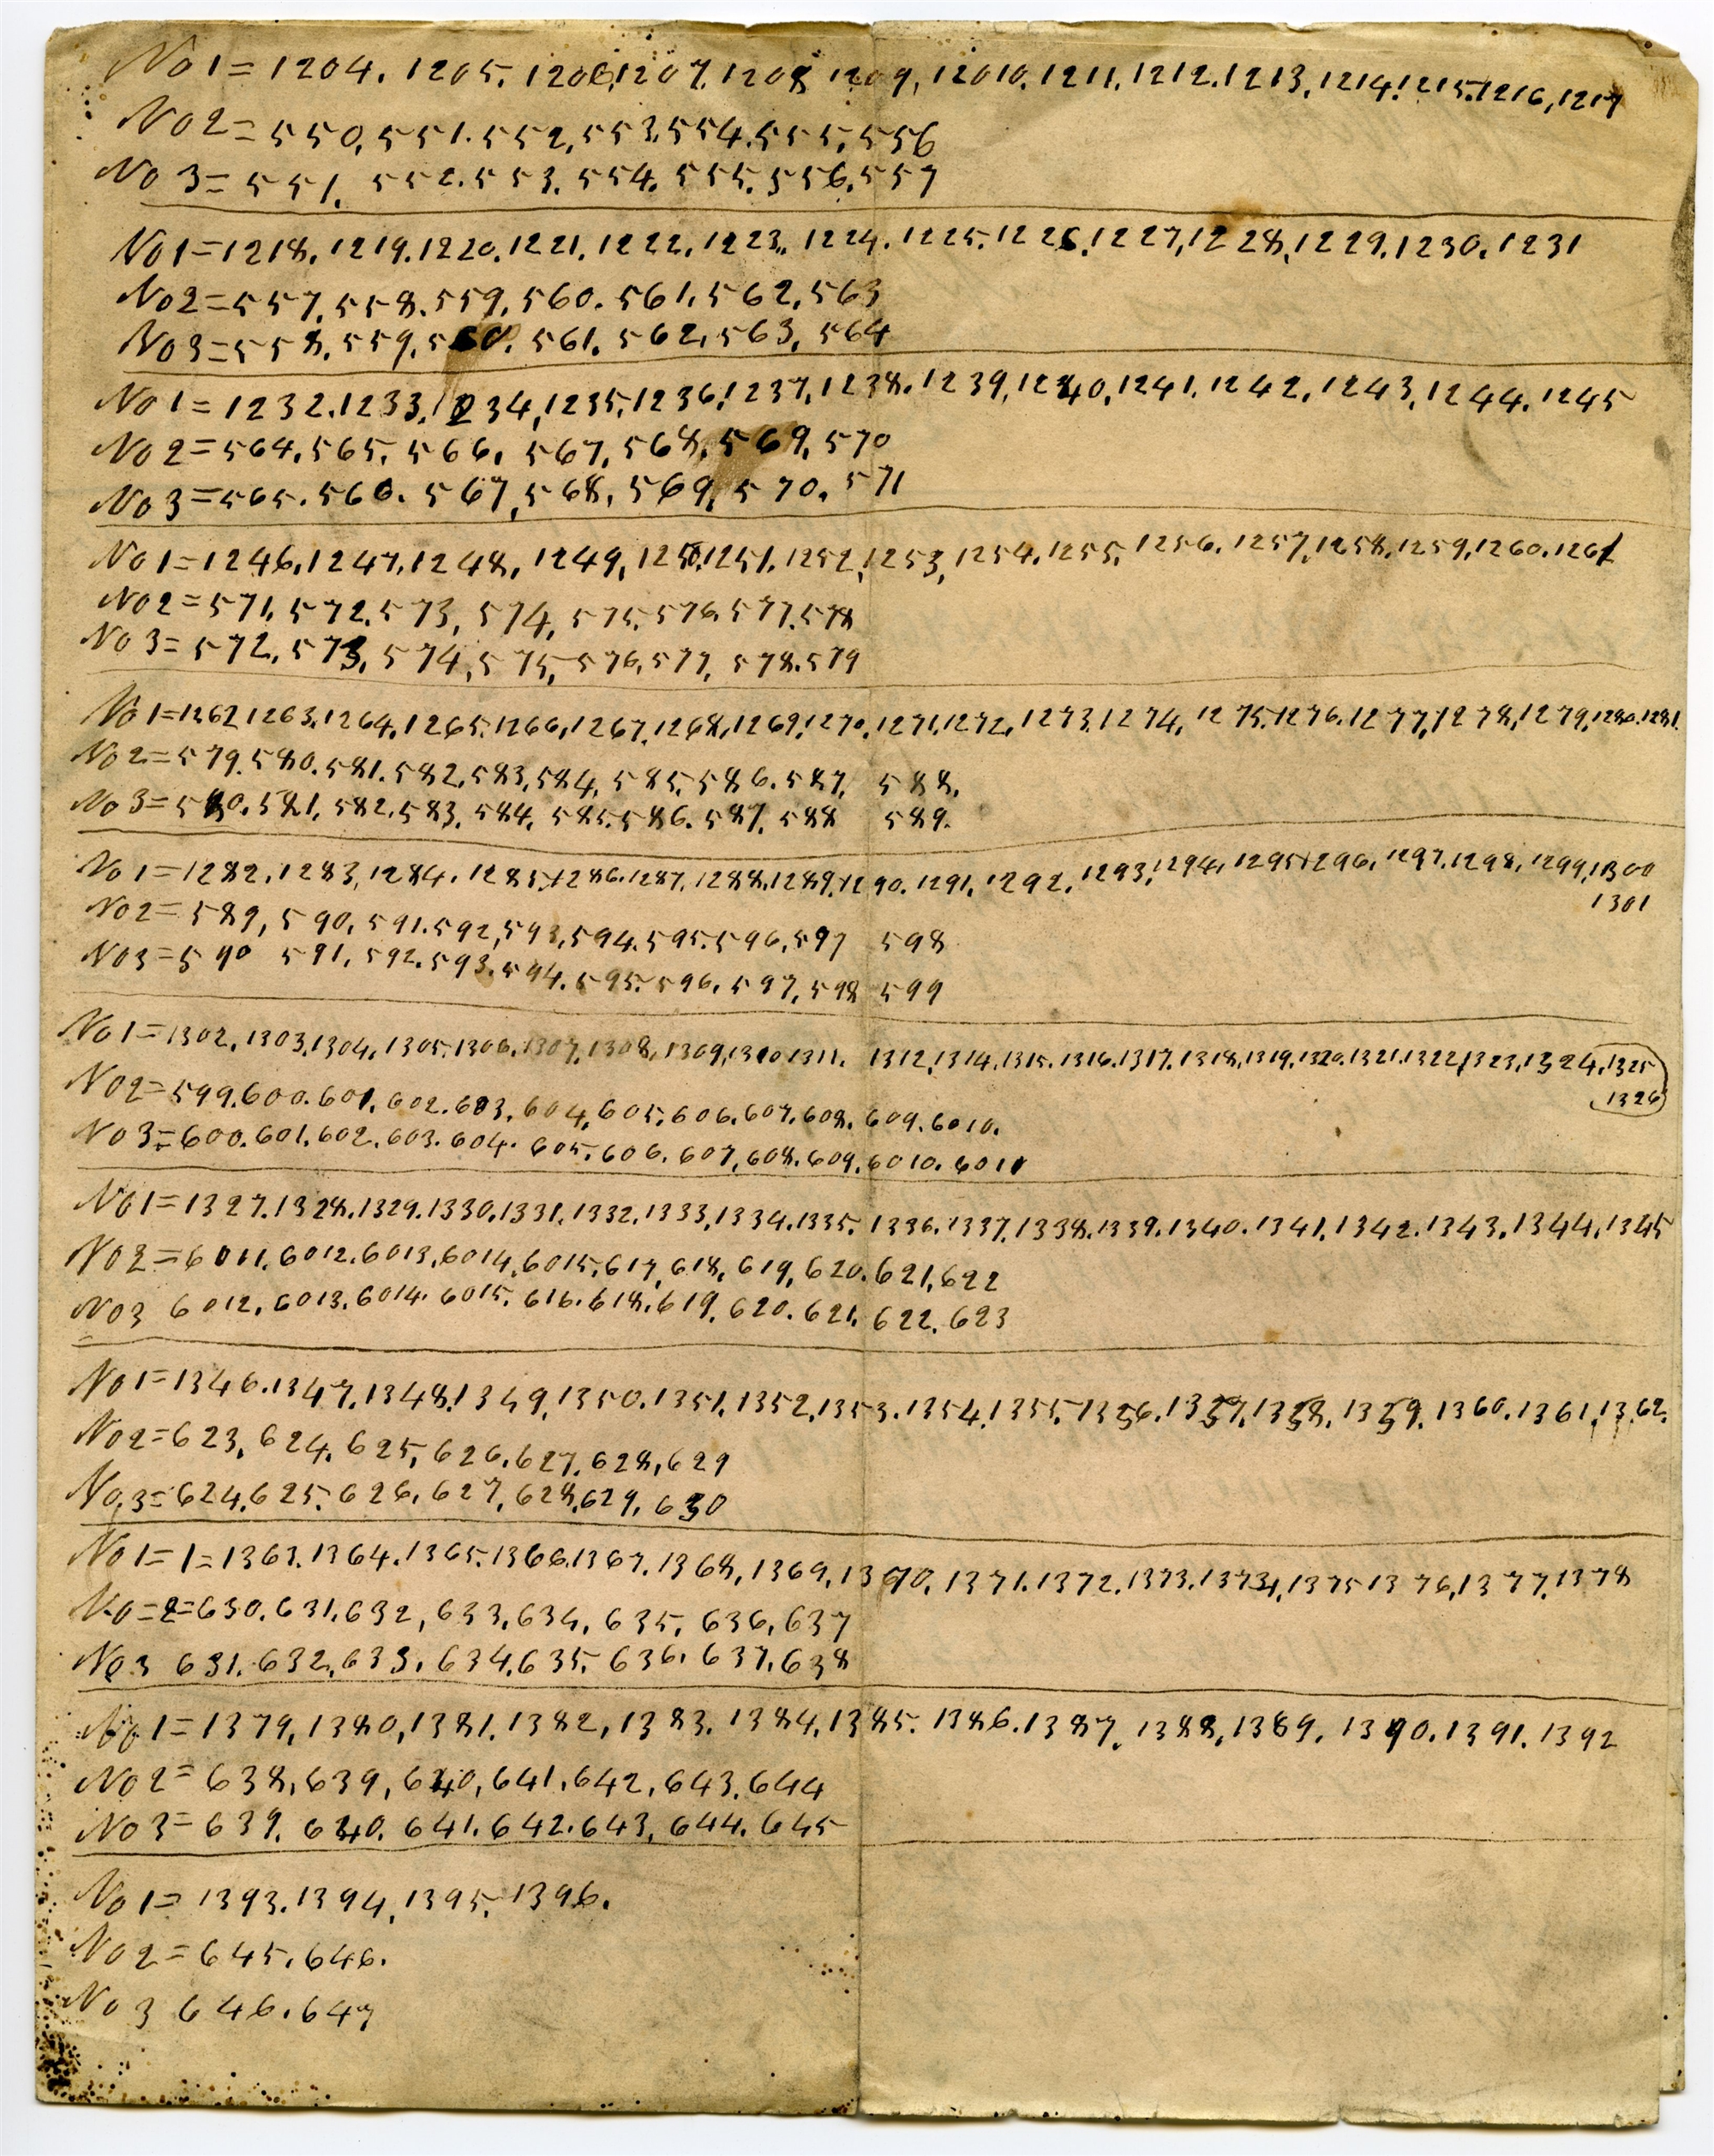 No 1 = 1204. 1205. 1206. 1207. 1208 1209, 12010. 1211. 1212. 1213, 1214. 1215. 1216, 1217
No 2 = 550, 551. 552, 553. 554. 555. 556
No 3 = 551. 552. 553. 554. 555. 556. 557
No 1 = 1218, 1219. 1220. 1221. 1222. 1223. 1224. 1225. 1226. 1227, 1228, 1229. 1230. 1231
No 2 = 557, 558. 559, 560. 561, 562, 563
No 3 = 558, 559, 560. 561. 562, 563, 564
No 1 = 1232. 1233. 1234, 1235. 1236. 1237, 1238. 1239, 1240, 1241. 1242. 1243, 1244. 1245
No 2 = 564, 565. 566. 567, 568, 569, 570
No 3 = 565. 566. 567, 568, 569, 570. 571
No 1 = 1246, 1247. 1248, 1249, 1250. 1251. 1252, 1253, 1254. 1255, 1256. 1257, 1258, 1259, 1260. 1261
No 2 = 571, 572. 573, 574, 575. 576, 577. 578
No 3 = 572, 573, 574, 575, 576, 577, 578. 579
No 1 = 1262 1263. 1264, 1265. 1266, 1267. 1268, 1269, 1270, 1271, 1272, 1273. 1274, 1275. 1276. 1277, 1278, 1279, 1280. 1281.
No 2 = 579. 580. 581. 582. 583, 584, 585. 586. 587, 588,
No 3 = 580. 581, 582. 583, 584, 585. 586. 587, 588 589.
No 1 = 1282. 1283, 1284. 1285. 1286. 1287, 1288, 1289, 1290. 1291, 1292. 1293. 1294, 1295. 1296, 1297. 1298. 1299, 1300
1301
No 2 = 589, 590, 591. 592, 593, 594. 595. 596, 597 598
No 3 = 590 591, 592. 593. 594. 595. 596, 597, 598 599
No 1 = 1302, 1303, 1304, 1305. 1306, 1307, 1308, 1309, 1310 1311. 1312, 1314. 1315. 1316. 1317. 1318, 1319, 1320. 1321. 1322, 1323, 1324, 1325
1326
No 2 = 599. 600. 601, 602. 603, 604, 605, 606. 607. 608, 609. 6010.
No 3 = 600. 601, 602. 603. 604. 605. 606. 607, 608. 609, 6010. 6011
No 1 = 1327. 1328. 1329. 1330. 1331. 1332. 1333, 1334. 1335. 1336. 1337, 1338. 1339. 1340. 1341, 1342. 1343, 1344, 1345
No 2 = 6011, 6012. 6013, 6014, 6015, 617, 618, 619, 620. 621, 622
No 3 6012, 6013. 6014. 6015. 616. 618. 619, 620. 621, 622. 623
No 1 = 1346. 1347, 1348. 1349, 1350. 1351, 1352, 1353. 1354. 1355. 1356. 1357, 1358, 1359. 1360. 1361, 1362.
No 2 = 623, 624, 625, 626, 627. 628, 629
No. 3 = 624. 625. 626, 627, 628, 629, 630
No 1 = 1 = 1363. 1364. 1365. 1366. 1367. 1368, 1369, 1370, 1371. 1372. 1373. 1374, 1375 1376, 1377. 1378
No = 2 = 630, 631, 632, 633, 634, 635, 636, 637
No 3 631. 632, 633, 634. 635. 636. 637. 638
No 1 = 1379, 1380, 1381. 1382, 1383. 1384, 1385. 1386. 1387. 1388, 1389. 1390. 1391. 1392
No 2 = 638, 639, 640, 641. 642, 643. 644
No 3 = 639. 640. 641. 642. 643, 644. 645
No 1 = 1393. 1394, 1395. 1396.
No 2 = 645. 646.
No 3 646. 647